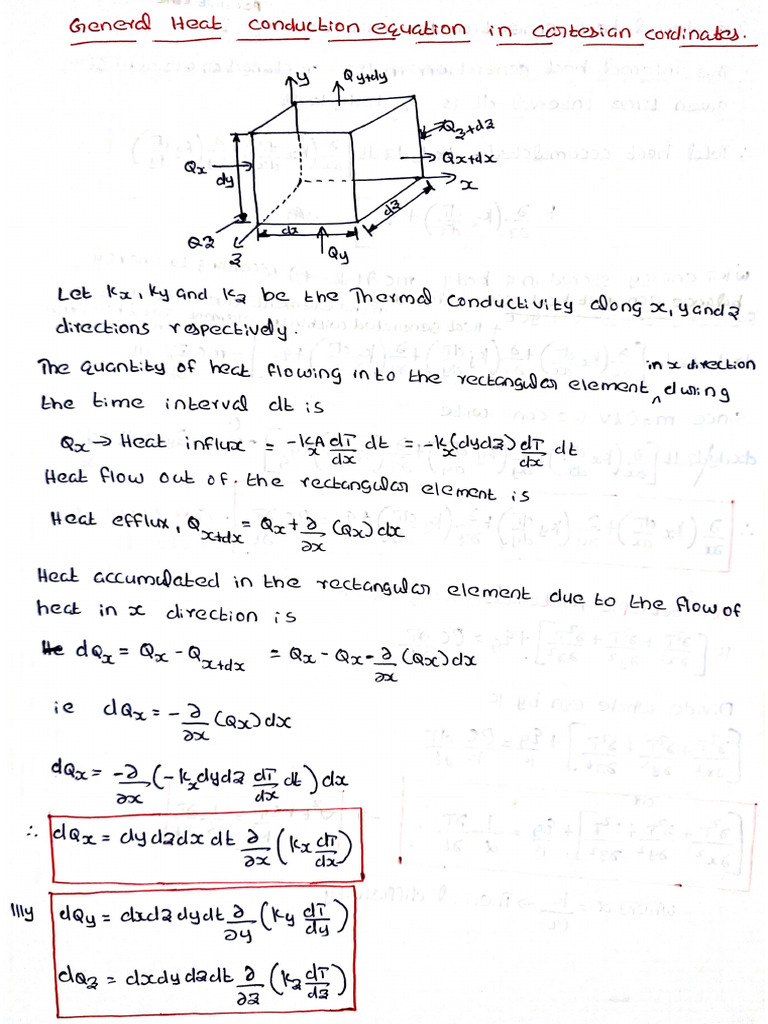 General Heat conduction equation in cartesian cordinates.
y
Qy+dy
Qz+dz
Qx+dx
Qx
dy
x
dz
dx
Qz
z
Qy
Let kx, ky and kz be the Thermal conductivity along x, y and z
directions respectively.
in x direction
The quantity of heat flowing into the rectangular element ^ during
the time interval dt is
Qx → Heat influx = -kxA dT/dx dt = -kx(dydz) dT/dx dt
Heat flow out of the rectangular element is
Heat efflux, Qx+dx = Qx + ∂/∂x (Qx) dx
Heat accumulated in the rectangular element due to the flow of
heat in x direction is
dQx = Qx - Qx+dx = Qx - Qx - ∂/∂x (Qx) dx
ie dQx = - ∂/∂x (Qx) dx
dQx = -∂/∂x (-kx dydz dT/dx dt) dx
∴ dQx = dydzdx dt ∂/∂x (kx dT/dx)
|||ly dQy = dxdzdydt ∂/∂y (ky dT/dy)
dQz = dxdydzdt ∂/∂z (kz dT/dz)